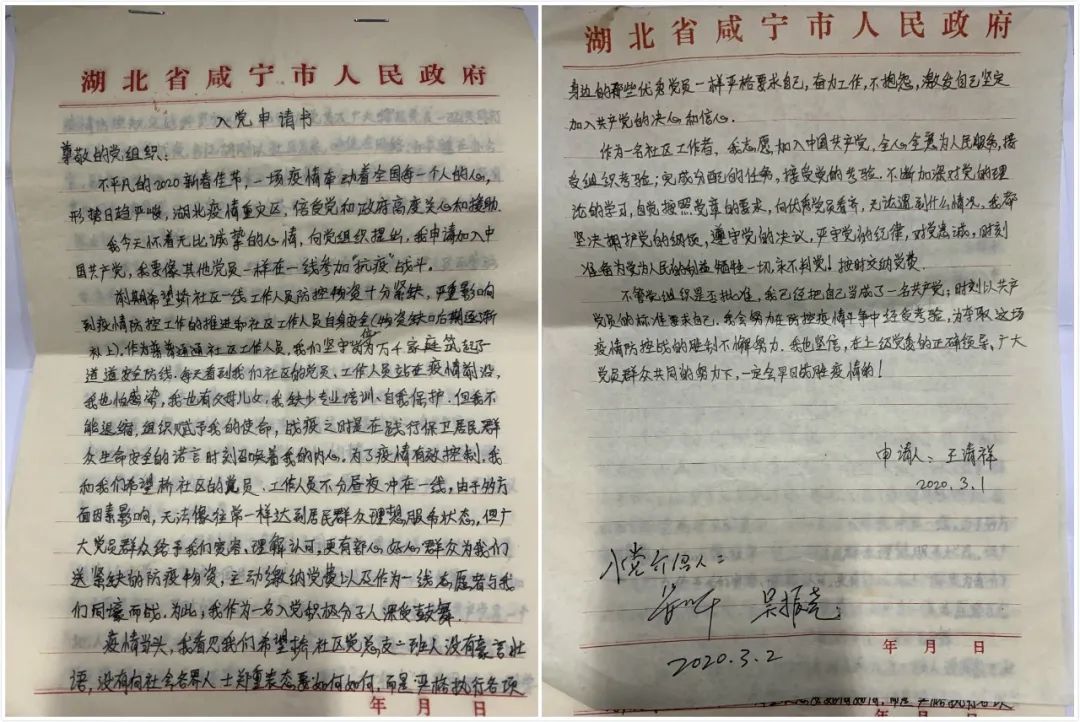 湖北省咸宁市人民政府
入党申请书
尊敬的党组织：
不平凡的2020新春佳节，一场疫情牵动着全国每一个人的心，
形势日趋严峻，湖北疫情重灾区，倍受党和政府高度关心和援助.
我今天怀着无比诚挚的心情，向党组织提出，我申请加入中
国共产党，我要像其他党员一样在一线参加“抗疫”战斗.
前期希望桥社区一线工作人员防控物资十分紧缺，严重影响
到疫情防控工作的推进和社区工作人员自身安全（物资缺口后期逐渐
补上）.作为普普通通社区工作人员，我们坚守岗为万千家庭筑起了
道道安全防线.每天看到我们社区的党员、工作人员站在疫情前沿，
我也怕感染，我也有父母儿女，我缺少专业培训、自我保护.但我不
能退缩，组织赋予我的使命，战疫之时是在践行保卫居民群
众生命安全的诺言时刻召唤着我的内心.为了疫情有效控制，我
和我们希望桥社区的党员、工作人员不分昼夜冲在一线，由于多方
面因素影响，无法像往常一样达到居民群众理想服务状态，但广
大党员群众给予我们宽容、理解认可，更有好心群众为我们
送紧缺的防疫物资，主动缴纳党费以及作为一线志愿者与我
们同壕而战.为此，我作为一名入党积极分子人深受鼓舞.
疫情当头，我看见我们希望桥社区党总支一班人没有豪言壮
语，没有向社会各界人士郑重表态要如何如何，而是严格执行各项
年 月 日
湖北省咸宁市人民政府
身边的那些优秀党员一样严格要求自己，奋力工作，不抱怨，激发自己坚定
加入共产党的决心和信心.
作为一名社区工作者，我志愿加入中国共产党，全心全意为人民服务，接
受组织考验；完成分配的任务，接受党的考验.不断加强对党的理
论的学习，自觉按照党章的要求，向优秀党员看齐，无论遇到什么情况，我都
坚决拥护党的纲领，遵守党的决议，严守党的纪律，对党忠诚，时刻
准备为党为人民的利益牺牲一切，永不判党！按时交纳党费.
不管党组织是否批准，我已经把自己当成了一名共产党；时刻以共产
党员的标准要求自己，我会努力在防控疫情斗争中经受考验，为夺取这场
疫情防控战的胜利不懈努力.我也坚信，在上级党委的正确领导、广大
党员群众共同的努力下，一定会早日战胜疫情的！
申请人：王清祥
2020.3.1
入党介绍人：
吴振尧
2020.3.2
年 月 日